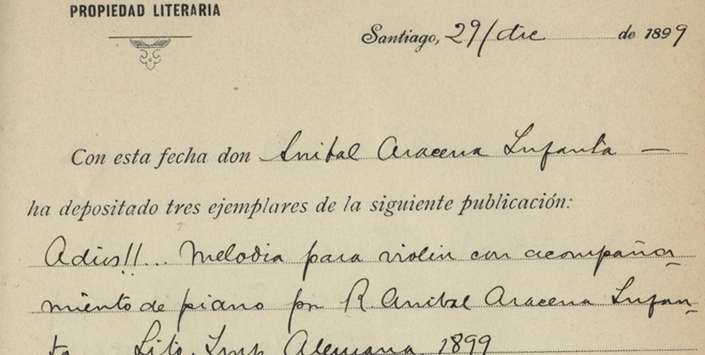 PROPIEDAD LITERARIA
Santiago, 29/dic de 1899
Con esta fecha don Anibal Aracena Infanta —
ha depositado tres ejemplares de la siguiente publicación:
Adios!!... Melodia para violin con acompaña
miento de piano por R. Anibal Aracena Infan-
ta. Lito. Imp. Alemana, 1899